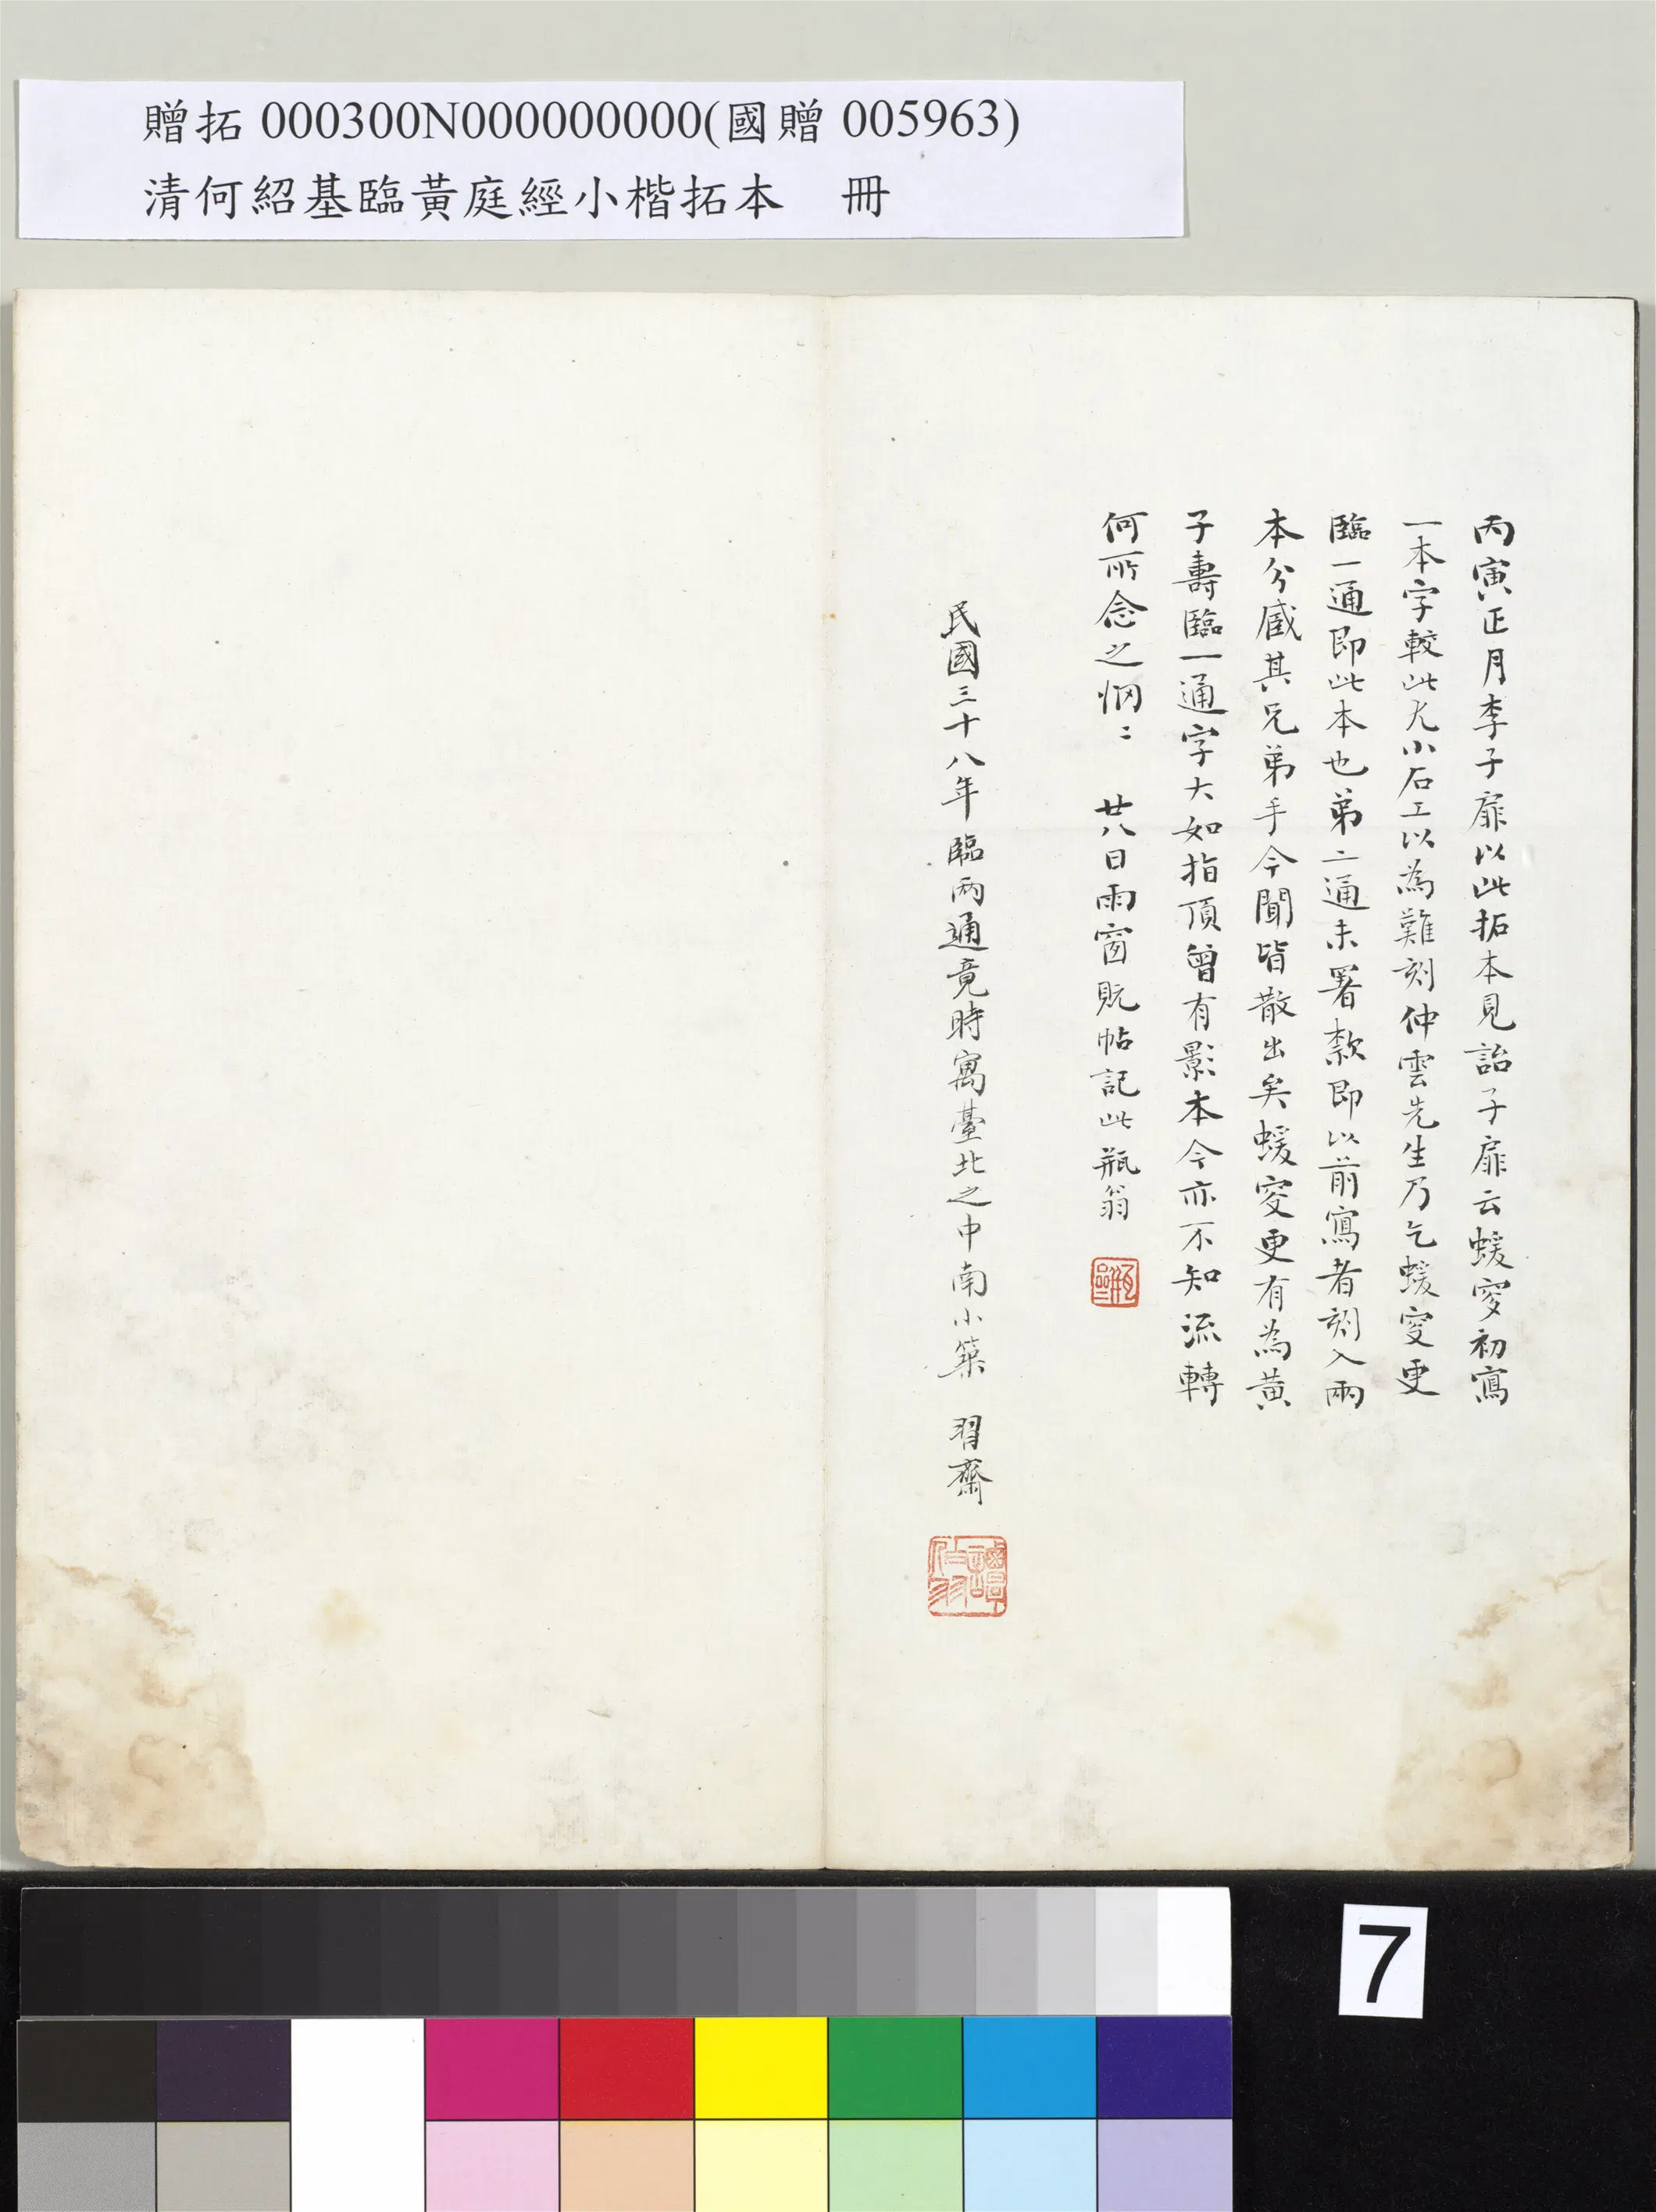 贈拓 000300N000000000(國贈 005963)
清何紹基臨黃庭經小楷拓本　冊
丙寅正月李子䧹以此拓本見詒子䧹云蝯叟初寫
一本字較此尤小石工以為難刻仲雲先生乃乞蝯叟更
臨一通即此本也弟二通未署款即以前寫者刻入兩
本分臧其兄弟手今聞皆散出矣蝯叟更有為黃
子壽臨一通字大如指頂曾有影本今亦不知流轉
何所念之惘〻　廿八日雨窗翫帖記此瓶翁
民國三十八年臨兩通竟時寓臺北之中南小築　習齋
7